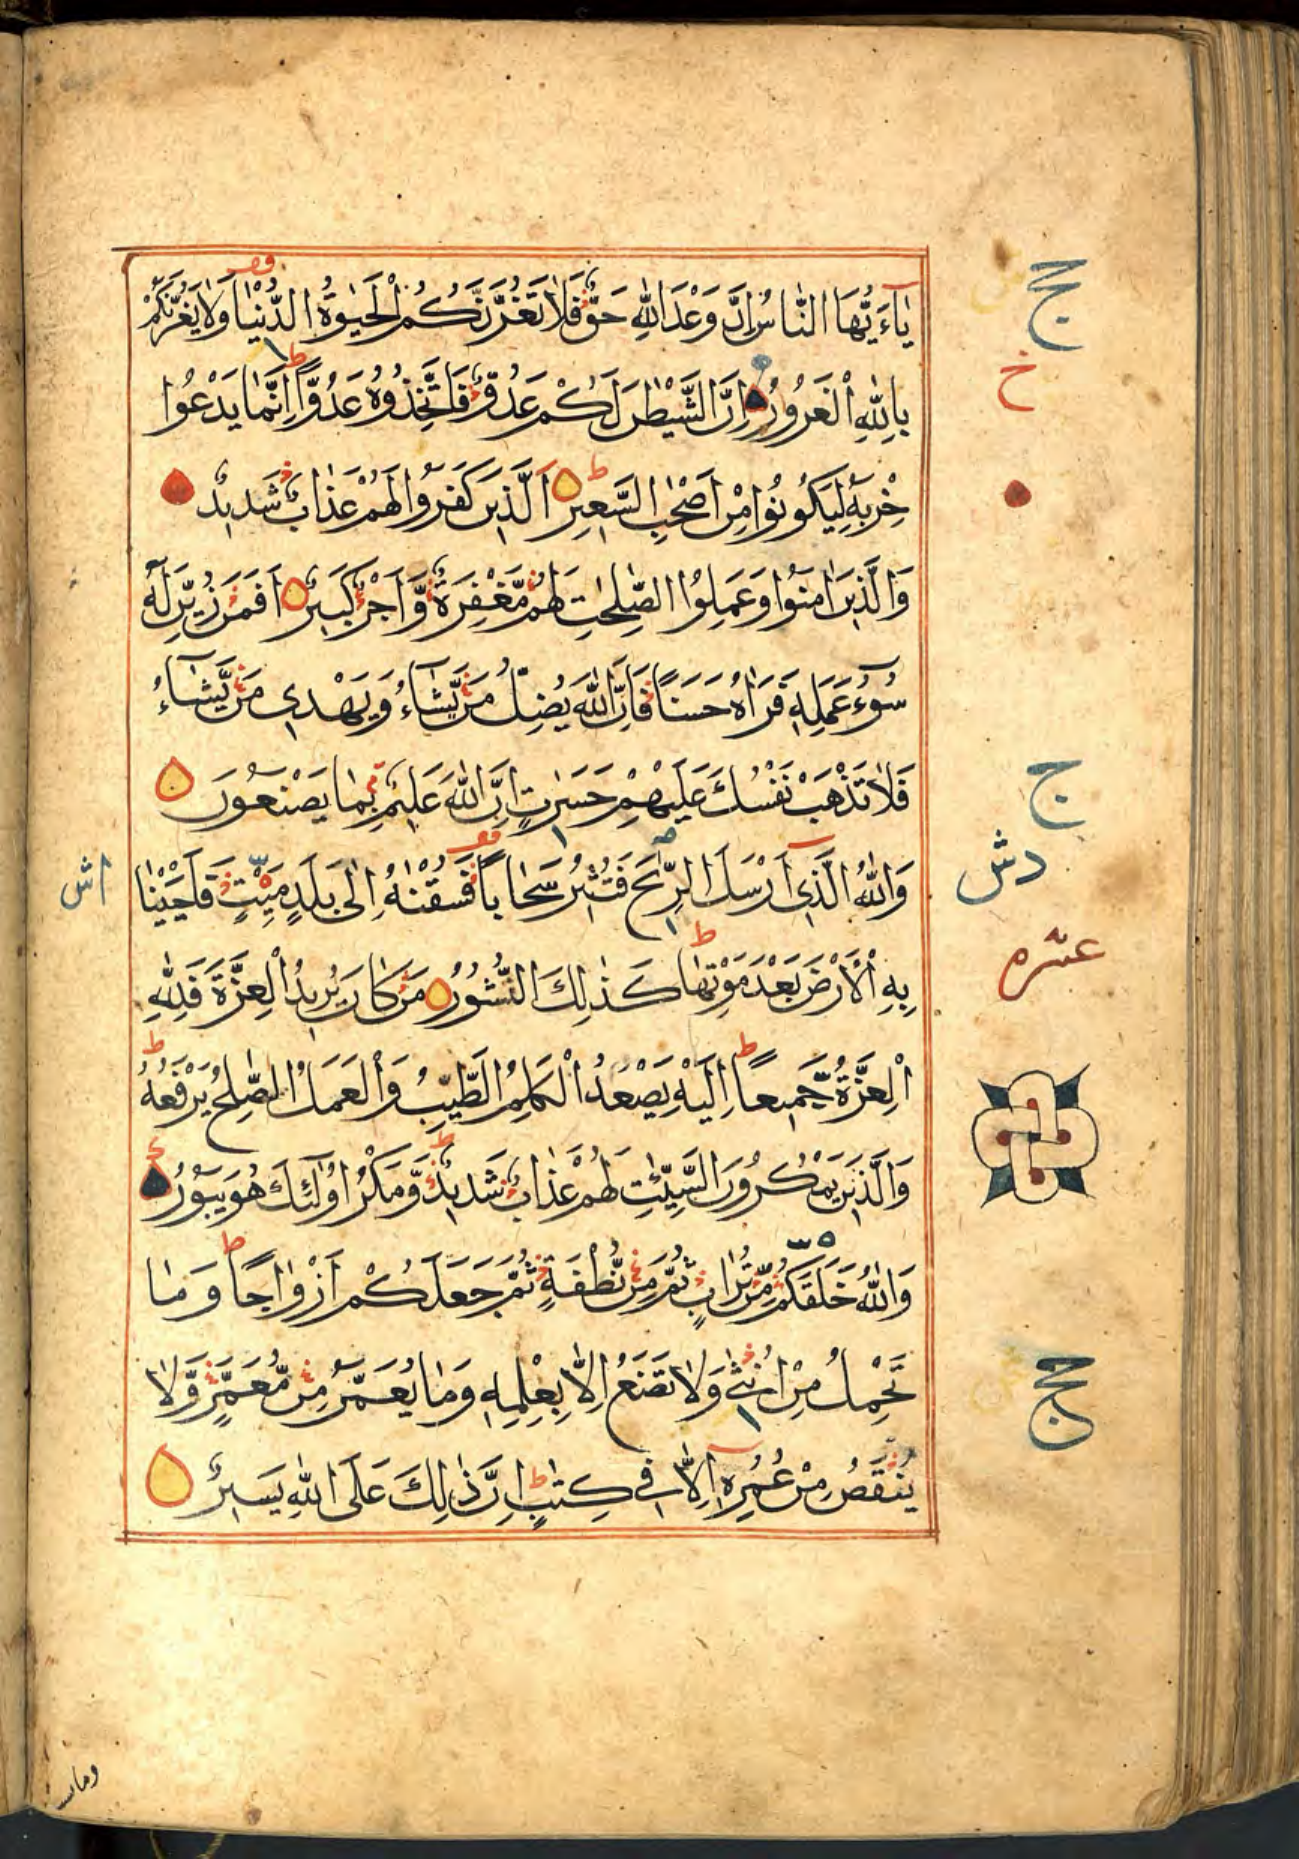 يٰٓاَيُّهَا النَّاسُ اِنَّ وَعْدَ اللّٰهِ حَقٌّ فَلَا تَغُرَّنَّكُمُ الْحَيٰوةُ الدُّنْيَا وَلَا يَغُرَّنَّكُمْ
بِاللّٰهِ الْغَرُورُ اِنَّ الشَّيْطٰنَ لَكُمْ عَدُوٌّ فَاتَّخِذُوهُ عَدُوًّا اِنَّمَا يَدْعُوا
حِزْبَهُ لِيَكُونُوا مِنْ اَصْحٰبِ السَّعِيرِ اَلَّذِينَ كَفَرُوا لَهُمْ عَذَابٌ شَدِيدٌ
وَالَّذِينَ اٰمَنُوا وَعَمِلُوا الصّٰلِحٰتِ لَهُمْ مَّغْفِرَةٌ وَّاَجْرٌ كَبِيرٌ اَفَمَنْ زُيِّنَ لَهُ
سُوٓءُ عَمَلِهِ فَرَاٰهُ حَسَنًا فَاِنَّ اللّٰهَ يُضِلُّ مَنْ يَّشَآءُ وَيَهْدِى مَنْ يَّشَآءُ
فَلَا تَذْهَبْ نَفْسُكَ عَلَيْهِمْ حَسَرٰتٍ اِنَّ اللّٰهَ عَلِيمٌ بِمَا يَصْنَعُونَ
وَاللّٰهُ الَّذِى اَرْسَلَ الرِّيٰحَ فَتُثِيرُ سَحَابًا فَسُقْنٰهُ اِلٰى بَلَدٍ مَيِّتٍ فَاَحْيَيْنَا
بِهِ الْاَرْضَ بَعْدَ مَوْتِهَا كَذٰلِكَ النُّشُورُ مَنْ كَانَ يُرِيدُ الْعِزَّةَ فَلِلّٰهِ
الْعِزَّةُ جَمِيعًا اِلَيْهِ يَصْعَدُ الْكَلِمُ الطَّيِّبُ وَالْعَمَلُ الصّٰلِحُ يَرْفَعُهُ
وَالَّذِينَ يَمْكُرُونَ السَّيِّئٰتِ لَهُمْ عَذَابٌ شَدِيدٌ وَّمَكْرُ اُولٰٓئِكَ هُوَ يَبُورُ
وَاللّٰهُ خَلَقَكُمْ مِّنْ تُرَابٍ ثُمَّ مِنْ نُّطْفَةٍ ثُمَّ جَعَلَكُمْ اَزْوَاجًا وَمَا
تَحْمِلُ مِنْ اُنْثٰى وَلَا تَضَعُ اِلَّا بِعِلْمِهِ وَمَا يُعَمَّرُ مِنْ مُّعَمَّرٍ وَّلَا
يُنْقَصُ مِنْ عُمُرِهِ اِلَّا فِى كِتٰبٍ اِنَّ ذٰلِكَ عَلَى اللّٰهِ يَسِيرٌ
خ
عشره